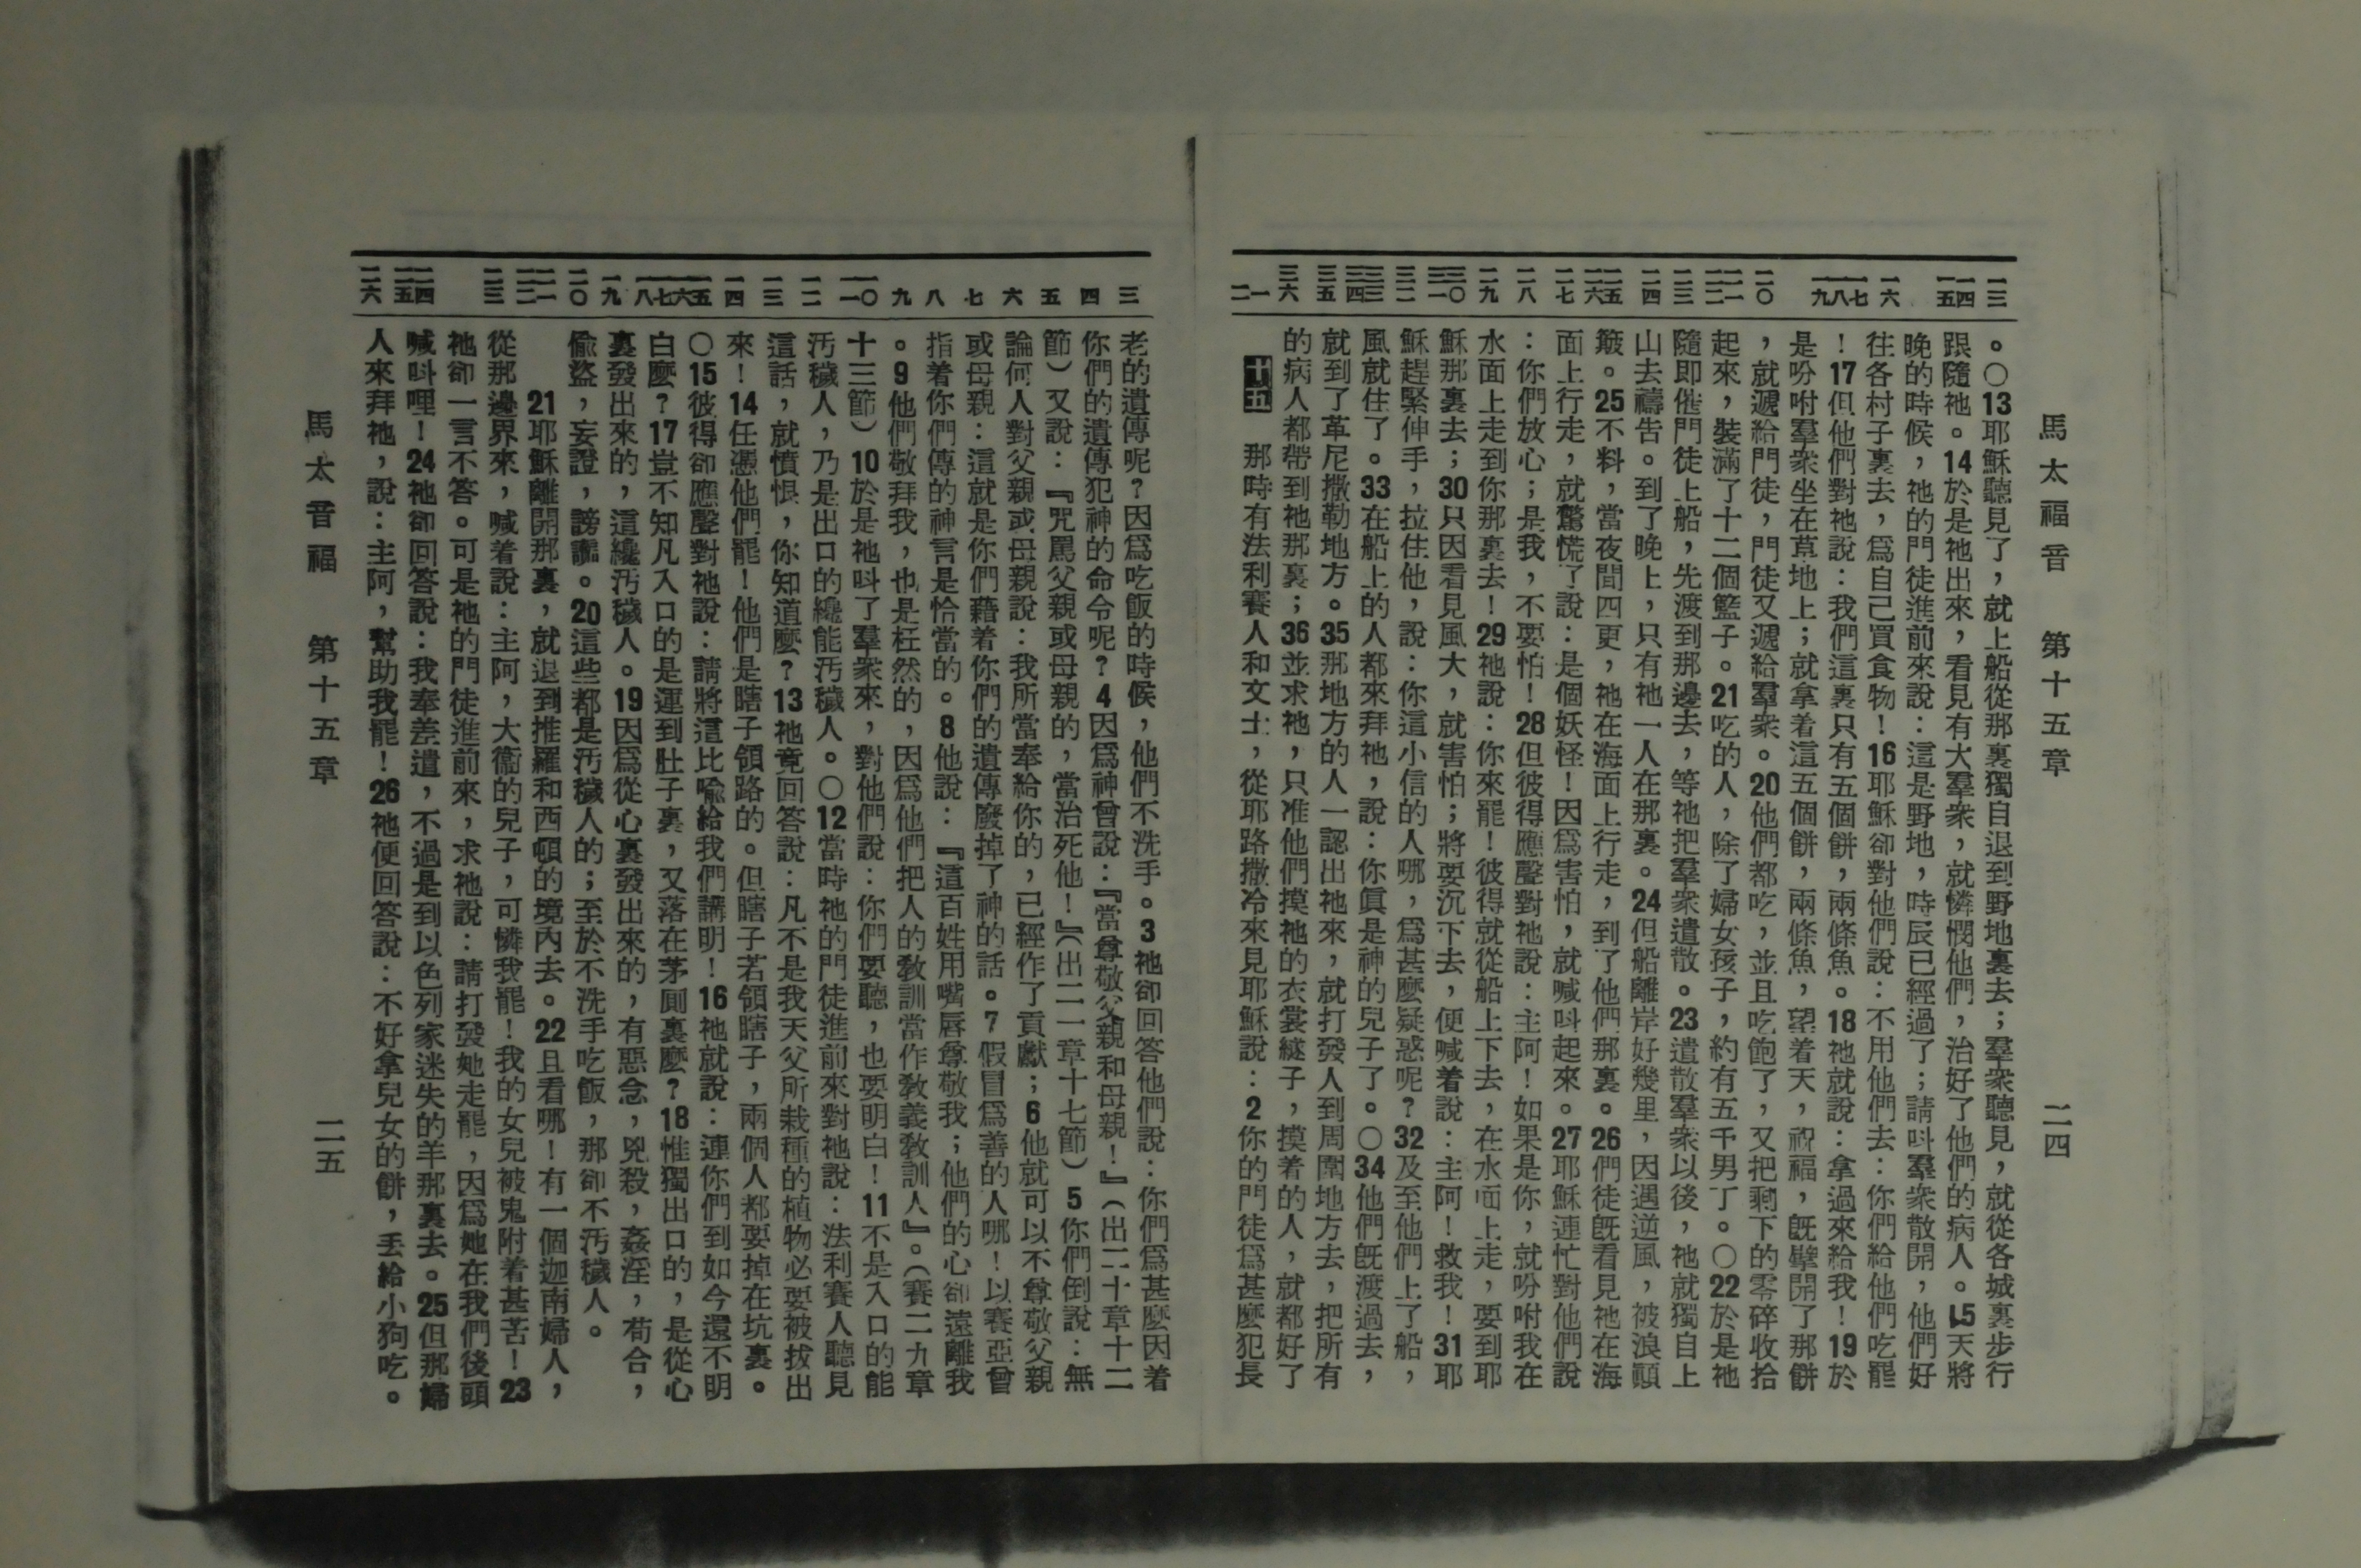 馬太福音　第十五章　二四
一三
一四
一五
一六
一七
一八
一九
二〇
二一
二二
二三
二四
二五
二六
二七
二八
二九
三〇
三一
三二
三三
三四
三五
三六
一
二
。〇13耶穌聽見了，就上船從那裏獨自退到野地裏去；羣衆聽見，就從各城裏步行
跟隨祂。14於是祂出來，看見有大羣衆，就憐憫他們，治好了他們的病人。15天將
晚的時候，祂的門徒進前來說：這是野地，時辰已經過了；請呌羣衆散開，他們好
往各村子裏去，爲自己買食物！16耶穌卻對他們說：不用他們去：你們給他們吃罷
！17但他們對祂說：我們這裏只有五個餅，兩條魚。18祂就說：拿過來給我！19於
是吩咐羣衆坐在草地上；就拿着這五個餅，兩條魚，望着天，祝福，旣擘開了那餅
，就遞給門徒，門徒又遞給羣衆。20他們都吃，並且吃飽了，又把剩下的零碎收拾
起來，裝滿了十二個籃子。21吃的人，除了婦女孩子，約有五千男丁。〇22於是祂
隨即催門徒上船，先渡到那邊去，等祂把羣衆遣散。23遣散羣衆以後，祂就獨自上
山去禱吿。到了晚上，只有祂一人在那裏。24但船離岸好幾里，因遇逆風，被浪顚
簸。25不料，當夜間四更，祂在海面上行走，到了他們那裏。26們徒旣看見祂在海
面上行走，就驚慌了說：是個妖怪！因爲害怕，就喊呌起來。27耶穌連忙對他們說
：你們放心；是我，不要怕！28但彼得應聲對祂說：主阿！如果是你，就吩咐我在
水面上走到你那裏去！29祂說：你來罷！彼得就從船上下去，在水面上走，要到耶
穌那裏去；30只因看見風大，就害怕；將要沉下去，便喊着說：主阿！救我！31耶
穌趕緊伸手，拉住他，說：你這小信的人哪，爲甚麼疑惑呢？32及至他們上了船，
風就住了。33在船上的人都來拜祂，說：你眞是神的兒子了。〇34他們旣渡過去，
就到了革尼撒勒地方。35那地方的人一認出祂來，就打發人到周圍地方去，把所有
的病人都帶到祂那裏；36並求祂，只准他們摸祂的衣裳繸子，摸着的人，就都好了
十五　那時有法利賽人和文士，從耶路撒冷來見耶穌說：2你的門徒爲甚麼犯長
三
四
五
六
七
八
九
一〇
一一
一二
一三
一四
一五
一六
一七
一八
一九
二〇
二一
二二
二三
二四
二五
二六
老的遺傳呢？因爲吃飯的時候，他們不洗手。3祂卻回答他們說：你們爲甚麼因着
你們的遺傳犯神的命令呢？4因爲神曾說：『當尊敬父親和母親！』（出二十章十二
節）又說：『咒罵父親或母親的，當治死他！』（出二一章十七節）5你們倒說：無
論何人對父親或母親說：我所當奉給你的，已經作了貢獻；6他就可以不尊敬父親
或母親：這就是你們藉着你們的遺傳廢掉了神的話。7假冒爲善的人哪！以賽亞曾
指着你們傳的神言是恰當的。8他說：『這百姓用嘴唇尊敬我；他們的心卻遠離我
。9他們敬拜我，也是枉然的，因爲他們把人的敎訓當作敎義敎訓人』。（賽二九章
十三節）10於是祂呌了羣衆來，對他們說：你們要聽，也要明白！11不是入口的能
汚穢人，乃是出口的纔能汚穢人。〇12當時祂的門徒進前來對祂說：法利賽人聽見
這話，就憤恨，你知道麼？13祂竟回答說：凡不是我天父所栽種的植物必要被拔出
來！14任憑他們罷！他們是瞎子領路的。但瞎子若領瞎子，兩個人都要掉在坑裏。
〇15彼得卻應聲對祂說：請將這比喩給我們講明！16祂就說：連你們到如今還不明
白麼？17豈不知凡入口的是運到肚子裏，又落在茅厠裏麼？18惟獨出口的，是從心
裏發出來的，這纔汚穢人。19因爲從心裏發出來的，有惡念，兇殺，姦淫，苟合，
偸盜，妄證，謗讟。20這些都是汚穢人的；至於不洗手吃飯，那卻不汚穢人。
21耶穌離開那裏，就退到推羅和西頓的境內去。22且看哪！有一個迦南婦人，
從那邊界來，喊着說：主阿，大衞的兒子，可憐我罷！我的女兒被鬼附着甚苦！23
祂卻一言不答。可是祂的門徒進前來，求祂說：請打發她走罷，因爲她在我們後頭
喊呌哩！24祂卻回答說：我奉差遣，不過是到以色列家迷失的羊那裏去。25但那婦
人來拜祂，說：主阿，幫助我罷！26祂便回答說：不好拿兒女的餅，丟給小狗吃。
馬太音福　第十五章　二五